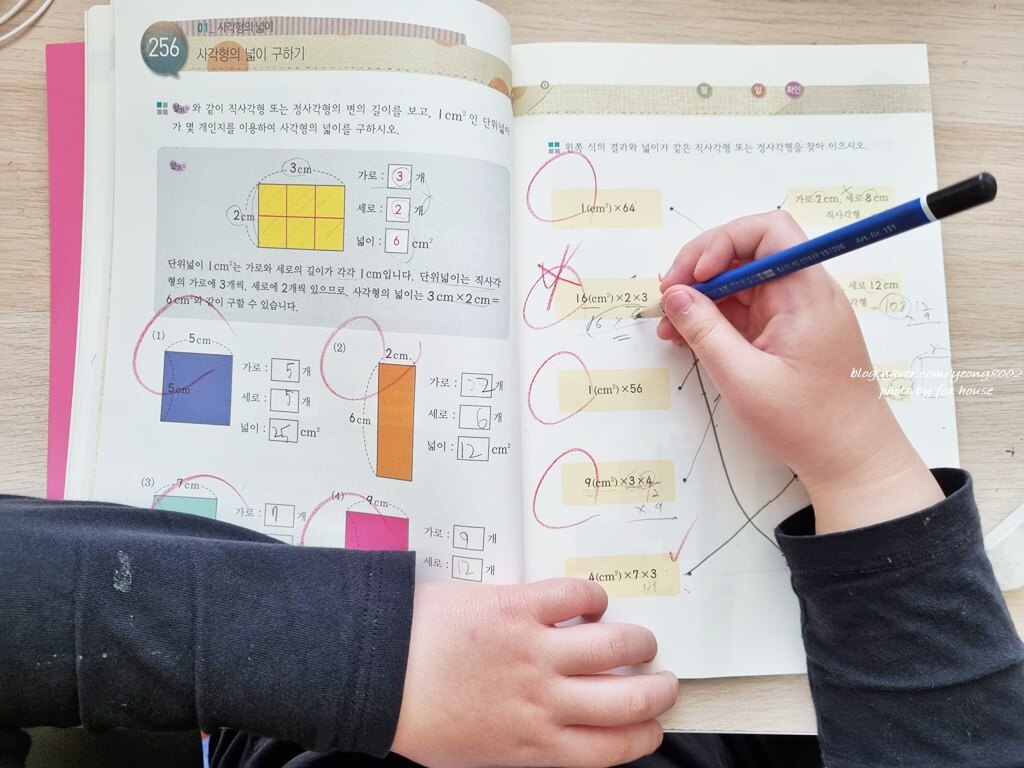 256
01 사각형의 넓이
사각형의 넓이 구하기
와 같이 직사각형 또는 정사각형의 변의 길이를 보고, 1cm²인 단위넓이
가 몇 개인지를 이용하여 사각형의 넓이를 구하시오.
3cm
2cm
가로 : 3 개
세로 : 2 개
넓이 : 6 cm²
단위넓이 1cm²는 가로와 세로의 길이가 각각 1cm입니다. 단위넓이는 직사각
형의 가로에 3개씩, 세로에 2개씩 있으므로, 사각형의 넓이는 3cm×2cm=
6cm²와 같이 구할 수 있습니다.
(1)
5cm
5cm
가로 : 5 개
세로 : 5 개
넓이 : 25 cm²
(2)
2cm
6cm
가로 : 2 개
세로 : 6 개
넓이 : 12 cm²
(3)
7cm
가로 : 7 개
(4)
9cm
가로 : 9 개
세로 : 12 개
월 일 확인
왼쪽 식의 결과와 넓이가 같은 직사각형 또는 정사각형을 찾아 이으시오.
1(cm²)×64
16(cm²)×2×3
16×6
1(cm²)×56
9(cm²)×3×4
12
×9
4(cm²)×7×3
가로 7cm, 세로 8cm
직사각형
세로 12cm
108
12
×9
blog.naver.com/yeong8002
photo by fox house